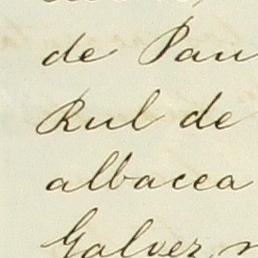 de Pau
Rul de
albacea
Galvez